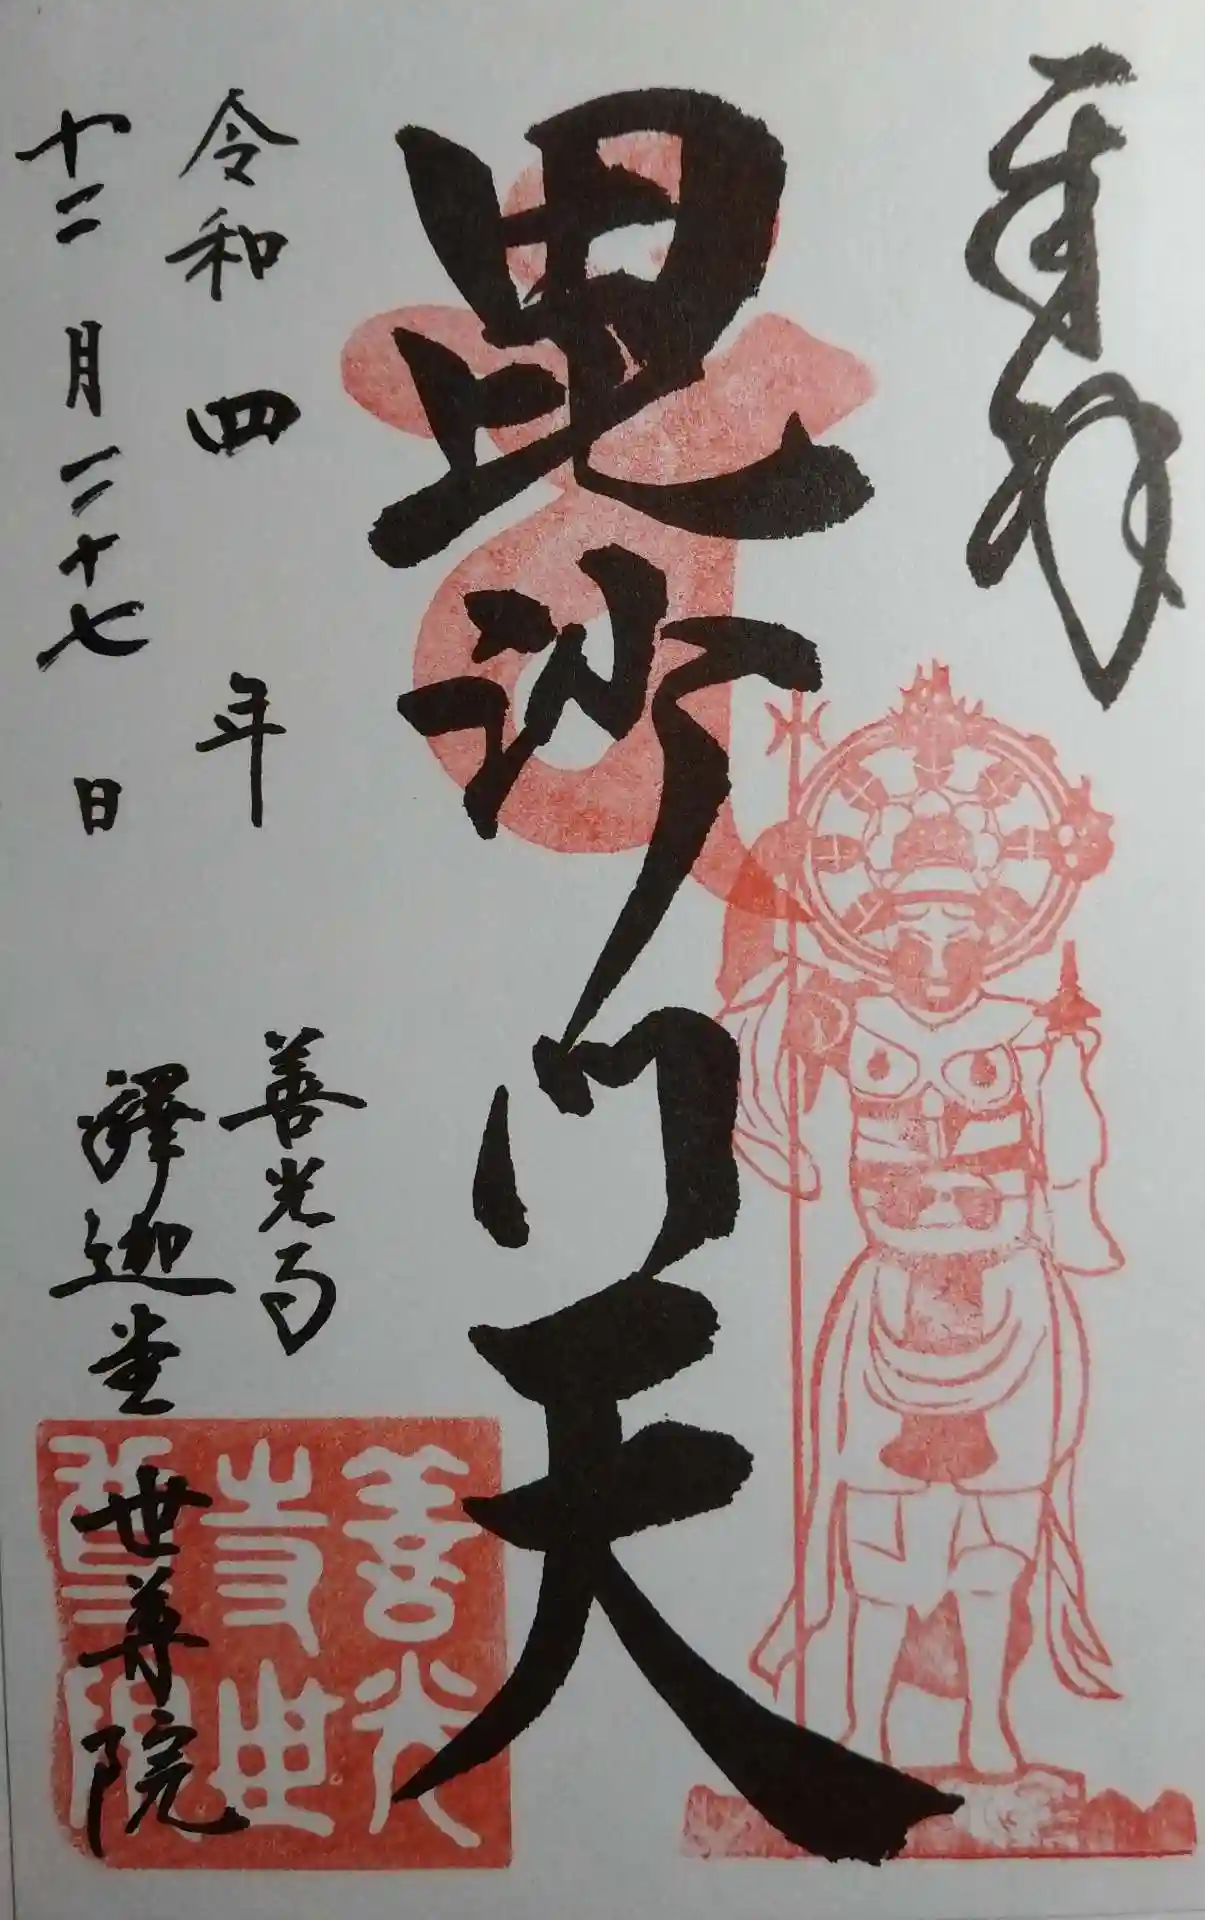 奉拝
毘沙門天
令和四年
十二月二十七日
善光寺
釋迦堂世尊院
善光寺世尊院